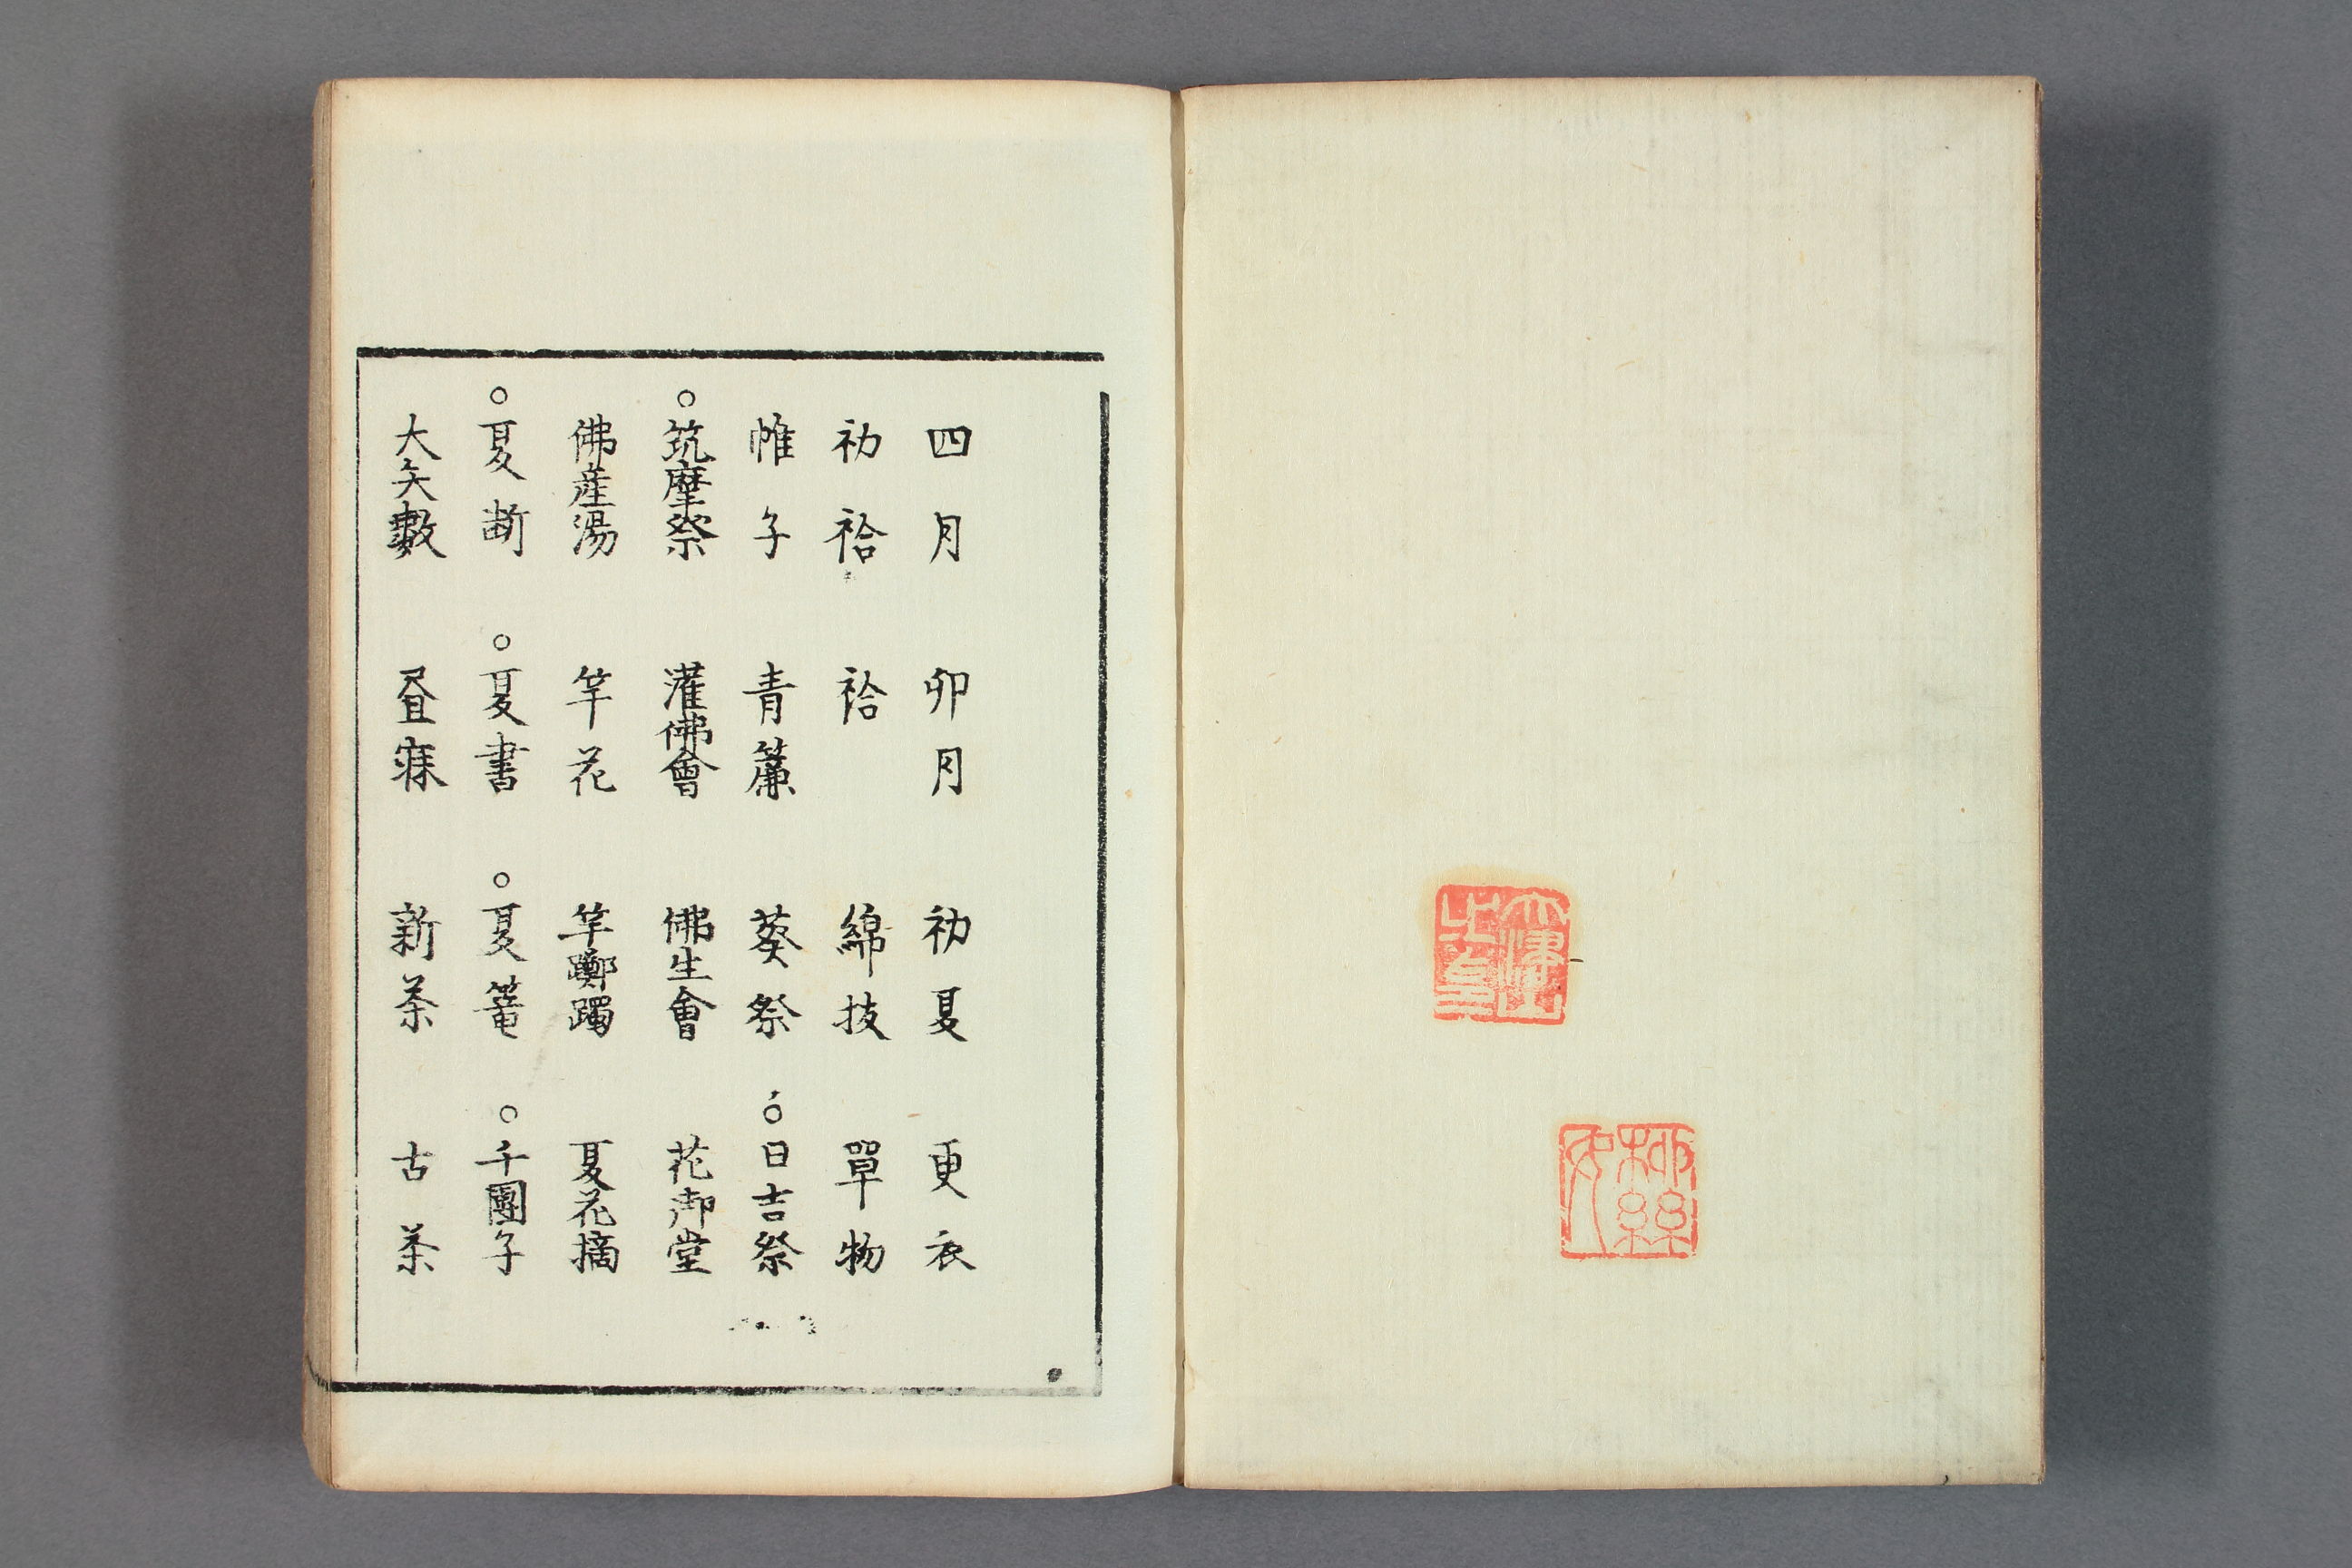 四月　卯月　初夏　更衣
初袷　袷　綿抜　單物
帷子　青簾　葵祭　○日吉祭
○筑摩祭　灌佛會　佛生會　花御堂
佛産湯　竿花　竿躑躅　夏花摘
○夏断　○夏書　○夏篭　○千團子
大矢數　昼寐　新茶　古茶